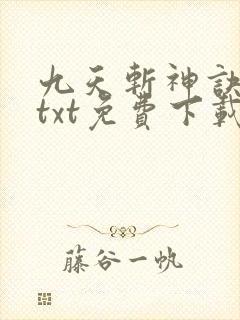 九天斬神訣
txt免費下載
藤谷一帆